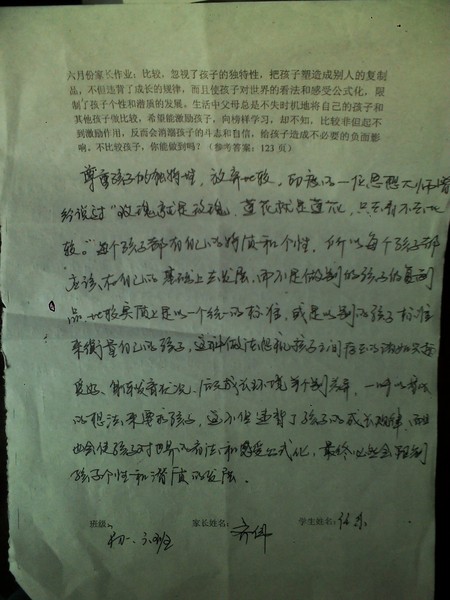 六月份家长作业：比较，忽视了孩子的独特性，把孩子塑造成别人的复制
品，不但违背了成长的规律，而且使孩子对世界的看法和感受公式化，限
制了孩子个性和潜质的发展。生活中父母总是不失时机地将自己的孩子和
其他孩子做比较，希望能激励孩子，向榜样学习，却不知，比较非但起不
到激励作用，反而会消磨孩子的斗志和自信，给孩子造成不必要的负面影
响。不比较孩子，你能做到吗？（参考答案：123页）
尊重孩子的独特性，放弃比较。印度的一位思想大师曾
经说过“玫瑰就是玫瑰，莲花就是莲花，只去看不去比
较。”每个孩子都有自己的特质和个性，所以每个孩子都
应该在自己的基础上去发展，而不是做别的孩子的复制
品。比较实质上是以一个统一的标准，或是以别的孩子标准
来衡量自己的孩子，这种做法忽视孩子之间存在的诸如
爱好、身体发育状况、后天成长环境等个别差异，一味以
的想法来要求孩子，这不但违背了孩子的成长规律，而且
也会使孩子对世界的看法和感受公式化，最终必然会限制
孩子个性和潜质的发展。
班级： 初一、六班 家长姓名： 学生姓名：